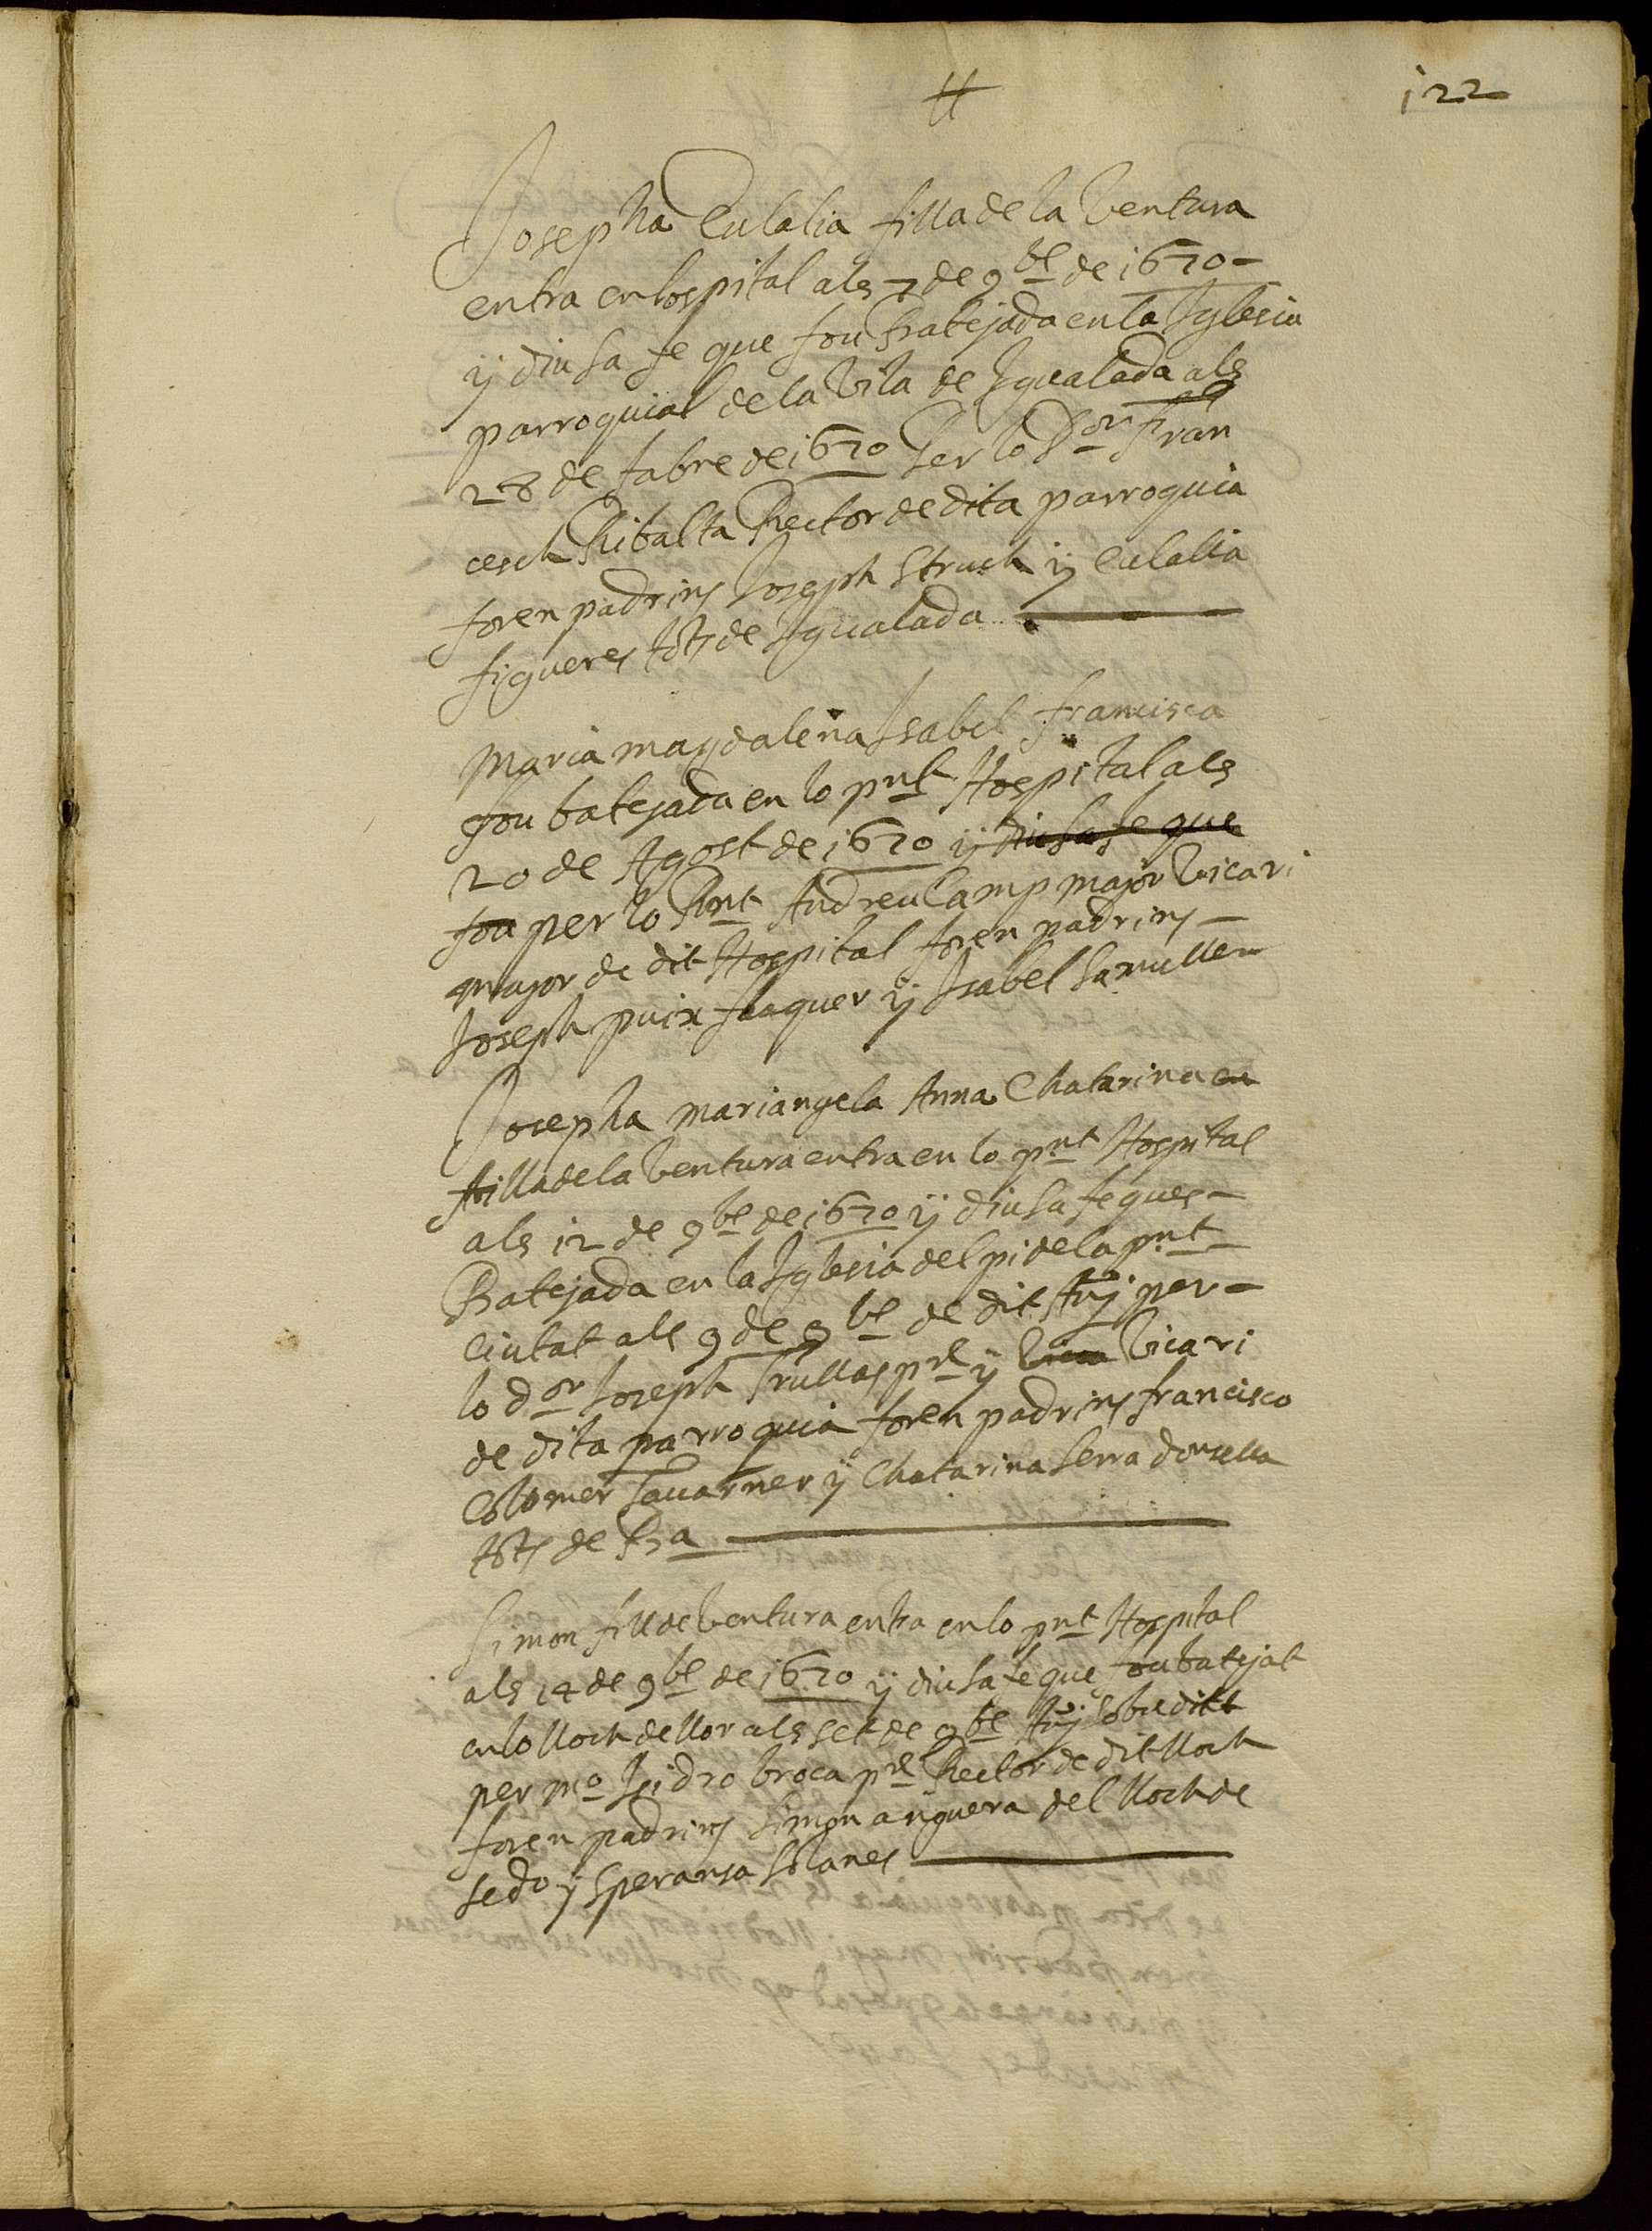 122
Josepha Eulalia filla de la Ventura
entra en lospital als 7 de 9bre de 1670 —
y diu sa fe que fou Batejada en la Iglesia
parroquial de la Vila de Igualada als
28 de de 1670 Per lo Dor Fran
cesch Ribalta Rector de dita parroquia
foren padrins Joseph Struch y Eulalia
figueres tots de Igualada
Maria magdalena Isabel francisca
fou batejada en lo pnt Hospital als
20 de Agost de 1670 y diu sa fe que
fou per lo Rnt Andreu Camp major Vicari
major de dit Hospital foren padrins —
Joseph puix flaquer y Isabel
Josepha mariangela Anna Chatarina en
filla de la Ventura entra en lo pnt Hospital
als 12 de 9bre de 1670 y diu sa fe ques —
Batejada en la Iglesia del pi de la pnt
Ciutat als 9 de 9bre de dit Any per —
lo dor Joseph Trullas pre y Vica Vicari
de dita parroquia foren padrins francisco
Colomer Tauarner y Chatarina Serra donsella
tots de Bra
Simon fill de Ventura entra en lo pnt Hospital
als 14 de 9bre de 1670 y diu sa fe que fou batejat
en lo lloch de llor als set de 9bre Any sobredit
per mo Isidro broca pre Rector de dit lloch
foren padrins Simon anguera del lloch de
sedo y Speransa Solanes